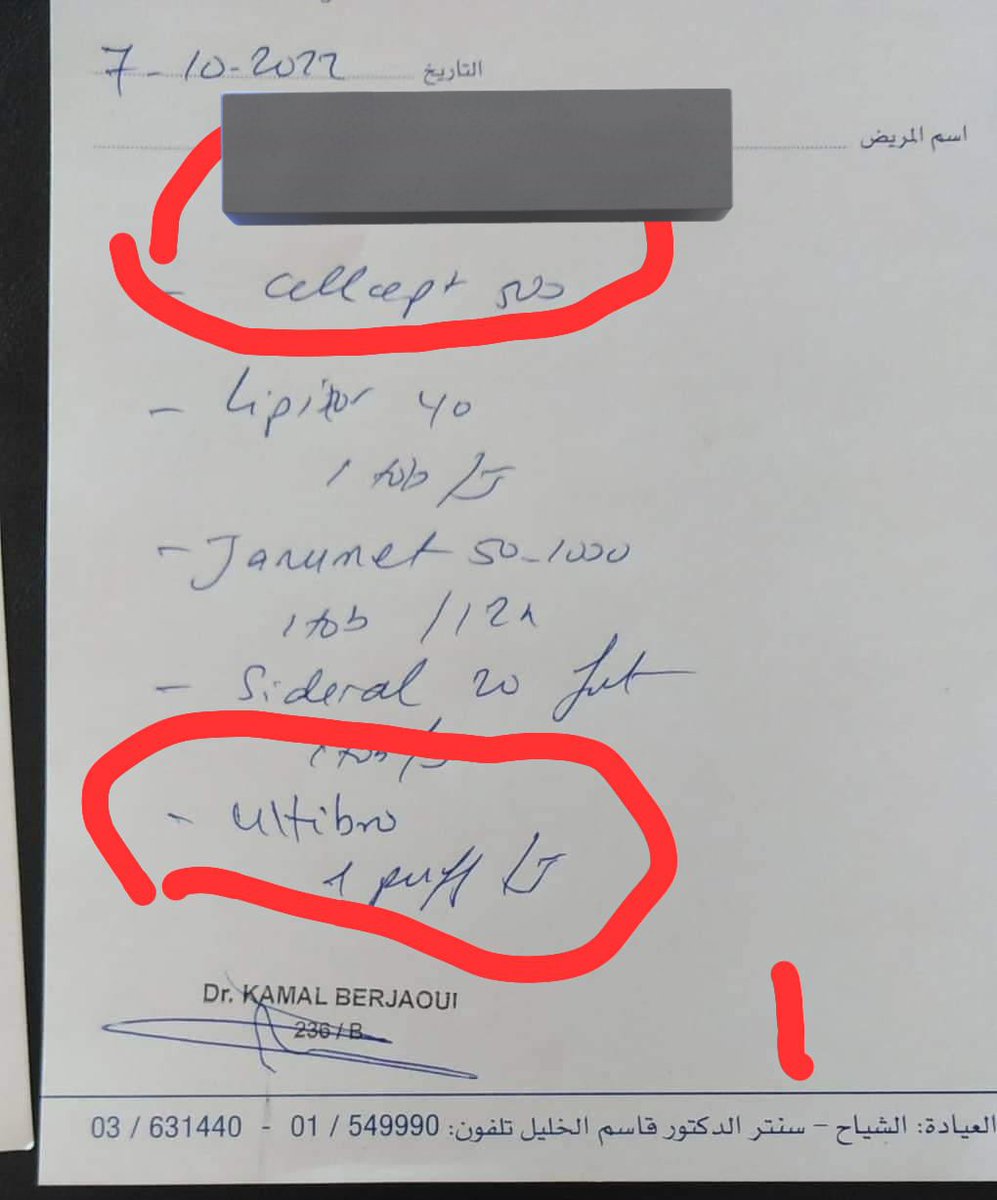 التاريخ 7-10-2022
اسم المريض
- Cellcept 500
- Lipitor 40
1 tab /J
- Janumet 50-1000
1 tab /12h
- Sideral 20
1 tab /J
- Ultibro
1 puff /J
Dr. KAMAL BERJAOUI
236 / B
العيادة: الشياح - سنتر الدكتور قاسم الخليل تلفون: 549990 / 01 - 631440 / 03